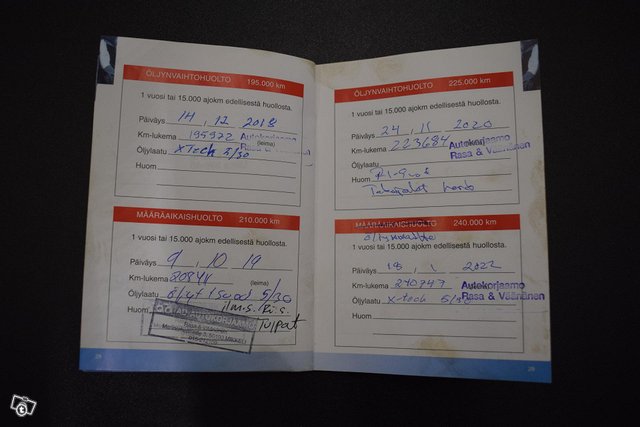 ÖLJYNVAIHTOHUOLTO 195.000 km
1 vuosi tai 15.000 ajokm edellisestä huollosta.
Päiväys 14 . 12 2018
Km-lukema 195972 Autokorjaamo
(leima) Rasa & Väänänen
Öljylaatu XTech 5/30
Huom
MÄÄRÄAIKAISHUOLTO 210.000 km
1 vuosi tai 15.000 ajokm edellisestä huollosta.
Päiväys 9 . 10 19
Km-lukema (leima)
Öljylaatu 5/30
Huom
Tulpat
28
ÖLJYNVAIHTOHUOLTO 225.000 km
1 vuosi tai 15.000 ajokm edellisestä huollosta.
Päiväys 24 . 11 2020
Km-lukema 223684 Autokorjaamo
Rasa & Väänänen
Öljylaatu
Huom
MÄÄRÄAIKAISHUOLTO 240.000 km
1 vuosi tai 15.000 ajokm edellisestä huollosta.
Päiväys 18 . 1 2022
Km-lukema 240747 Autokorjaamo
Öljylaatu X-tech 5/30 Rasa & Väänänen
Huom
29